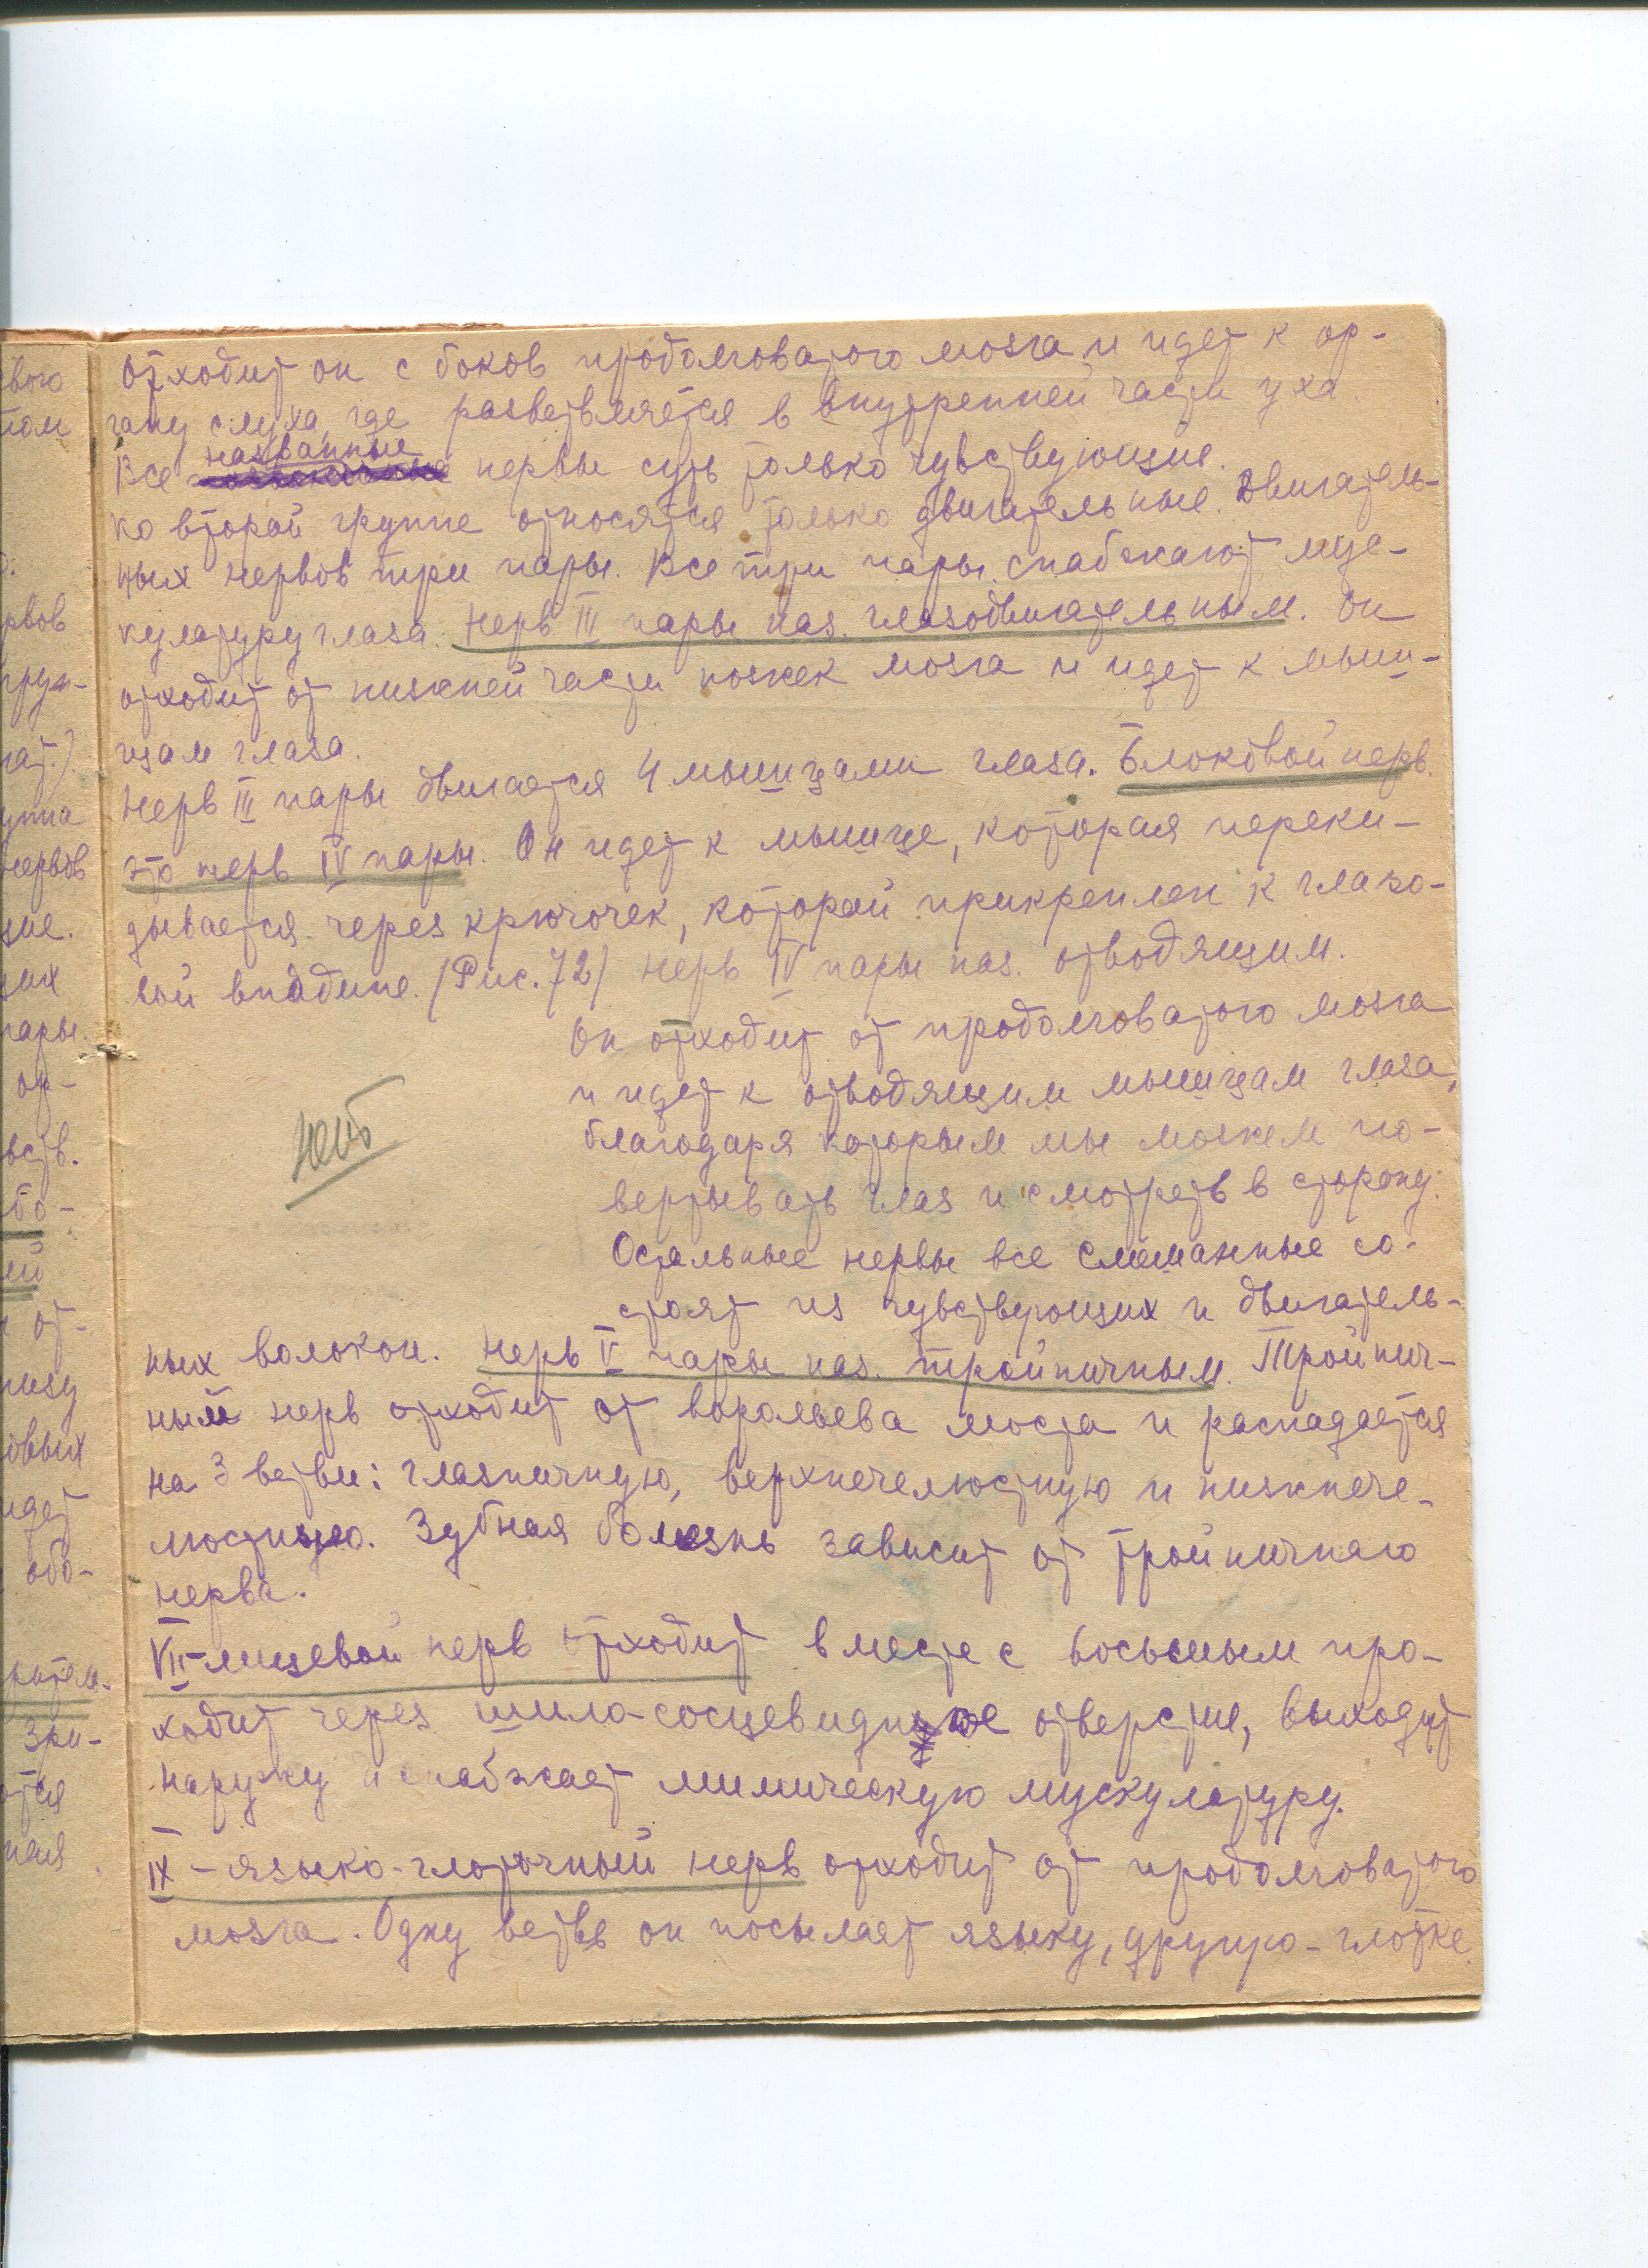 Отходит он с боков продолговатого мозга и идет к ор-
гану слуха, где разветвляется в внутренней части уха.
названные
Все нервы суть только чувствующие.
ко второй группе относятся только двигательные. Двигатель-
ных нервов три пары. Все три пары снабжают мус-
кулатуру глаза. Нерв III пары наз. глазодвигательным. Он
отходит от нижней части ножек мозга и идет к мыш-
цам глаза.
Нерв III пары двигается 4 мышцами глаза. Блоковой нерв.
это нерв IV пары. Он идет к мышце, которая переки-
дывается через крючочек, который прикреплен к глазо-
вой впадине. (Рис. 72) Нерв IV пары наз. отводящим.
Он отходит от продолговатого мозга
и идет к отводящим мышцам глаза,
благодаря которым мы можем по-
вертывать глаз и смотреть в сторону.
Остальные нервы все смешанные со-
стоят из чувствующих и двигатель-
ных волокон. Нерв V пары наз. тройничным. Тройнич-
ный нерв отходит от варольева моста и распадается
на 3 ветви: глазничную, верхнечелюстную и нижнече-
люстную. Зубная болезнь зависит от тройничного
нерва.
VII-лицевой нерв отходит вместе с восьмым про-
ходит через шило-сосцевидное отверстие, выходит
наружу и снабжает мимическую мускулатуру.
IX - языко-глоточный нерв отходит от продолговатого
мозга. Одну ветвь он посылает языку, другую - глотке.